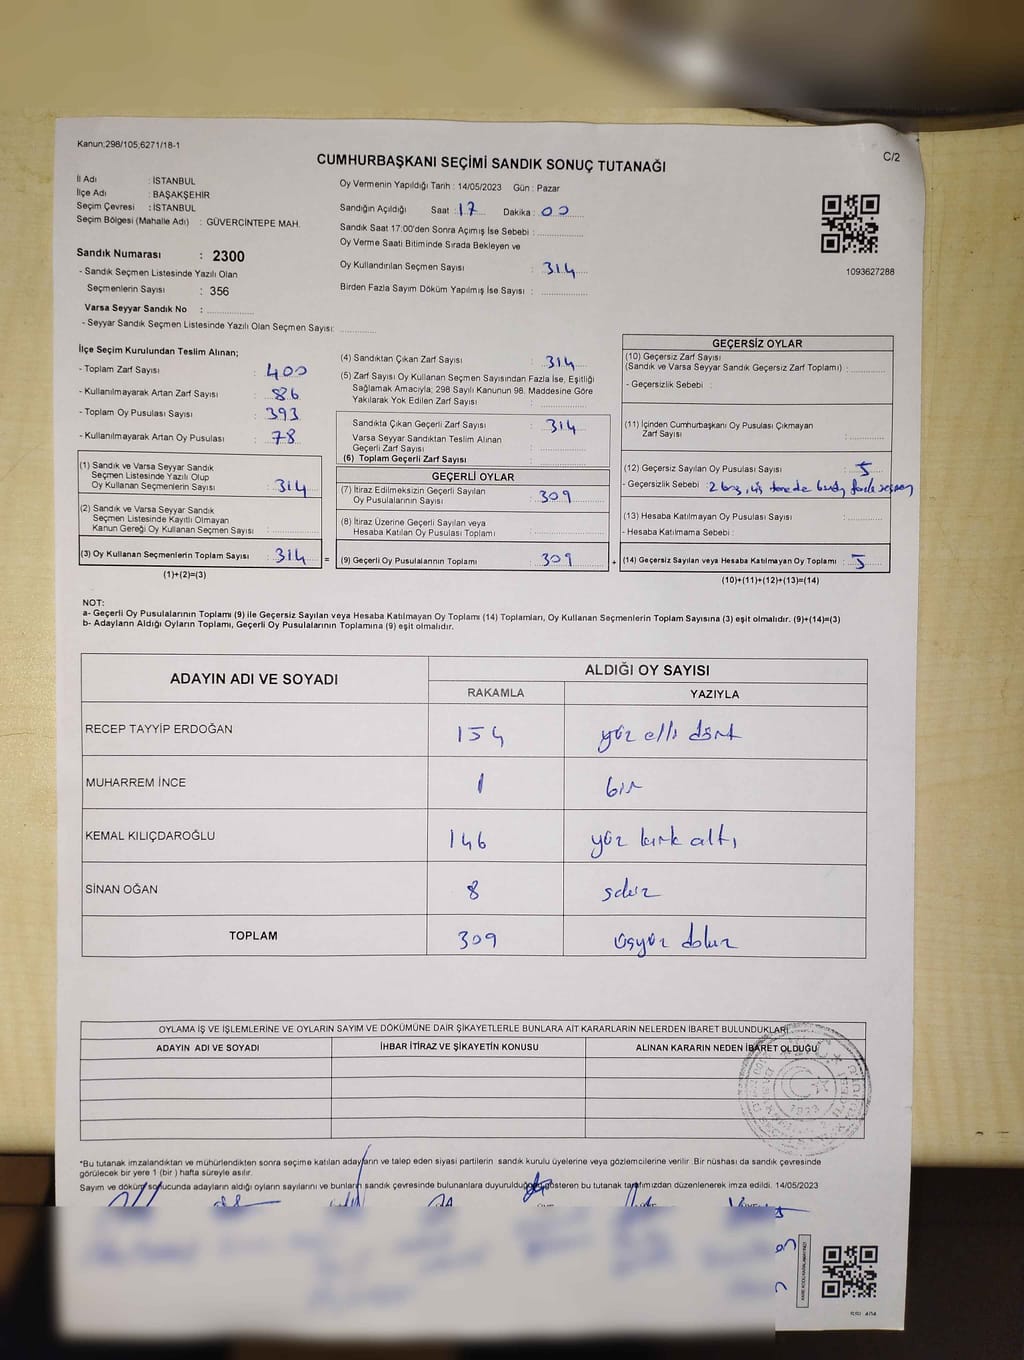 Kanun;298/105,6271/18-1
C/2
CUMHURBAŞKANI SEÇİMİ SANDIK SONUÇ TUTANAĞI
İl Adı : İSTANBUL
İlçe Adı : BAŞAKŞEHİR
Seçim Çevresi : İSTANBUL
Seçim Bölgesi (Mahalle Adı) : GÜVERCİNTEPE MAH.
Sandık Numarası : 2300
- Sandık Seçmen Listesinde Yazılı Olan
Seçmenlerin Sayısı : 356
Varsa Seyyar Sandık No :
- Seyyar Sandık Seçmen Listesinde Yazılı Olan Seçmen Sayısı:
Oy Vermenin Yapıldığı Tarih : 14/05/2023 Gün : Pazar
Sandığın Açıldığı Saat : 17 Dakika : 00
Sandık Saat 17:00'den Sonra Açımış İse Sebebi :
Oy Verme Saati Bitiminde Sırada Bekleyen ve
Oy Kullandırılan Seçmen Sayısı : 314
Birden Fazla Sayım Döküm Yapılmış İse Sayısı :
1093627288
İlçe Seçim Kurulundan Teslim Alınan;
- Toplam Zarf Sayısı : 400
- Kullanılmayarak Artan Zarf Sayısı : 86
- Toplam Oy Pusulası Sayısı : 393
- Kullanılmayarak Artan Oy Pusulası : 78
(1) Sandık ve Varsa Seyyar Sandık
Seçmen Listesinde Yazılı Olup
Oy Kullanan Seçmenlerin Sayısı : 314
(2) Sandık ve Varsa Seyyar Sandık
Seçmen Listesinde Kayıtlı Olmayan
Kanun Gereği Oy Kullanan Seçmen Sayısı :
(3) Oy Kullanan Seçmenlerin Toplam Sayısı : 314
(1)+(2)=(3)
=
(4) Sandıktan Çıkan Zarf Sayısı : 314
(5) Zarf Sayısı Oy Kullanan Seçmen Sayısından Fazla İse, Eşitliği
Sağlamak Amacıyla; 298 Sayılı Kanunun 98. Maddesine Göre
Yakılarak Yok Edilen Zarf Sayısı :
Sandıkta Çıkan Geçerli Zarf Sayısı : 314
Varsa Seyyar Sandıktan Teslim Alınan
Geçerli Zarf Sayısı :
(6) Toplam Geçerli Zarf Sayısı :
GEÇERLİ OYLAR
(7) İtiraz Edilmeksizin Geçerli Sayılan
Oy Pusulalarının Sayısı : 309
(8) İtiraz Üzerine Geçerli Sayılan veya
Hesaba Katılan Oy Pusulası Toplamı :
(9) Geçerli Oy Pusulalarının Toplamı : 309
+
GEÇERSİZ OYLAR
(10) Geçersiz Zarf Sayısı
(Sandık ve Varsa Seyyar Sandık Geçersiz Zarf Toplamı) :
- Geçersizlik Sebebi :
(11) İçinden Cumhurbaşkanı Oy Pusulası Çıkmayan
Zarf Sayısı :
(12) Geçersiz Sayılan Oy Pusulası Sayısı : 5
- Geçersizlik Sebebi : 2 boş, üç tanede
(13) Hesaba Katılmayan Oy Pusulası Sayısı :
- Hesaba Katılmama Sebebi :
(14) Geçersiz Sayılan veya Hesaba Katılmayan Oy Toplamı : 5
(10)+(11)+(12)+(13)=(14)
NOT:
a- Geçerli Oy Pusulalarının Toplamı (9) ile Geçersiz Sayılan veya Hesaba Katılmayan Oy Toplamı (14) Toplamları, Oy Kullanan Seçmenlerin Toplam Sayısına (3) eşit olmalıdır. (9)+(14)=(3)
b- Adayların Aldığı Oyların Toplamı, Geçerli Oy Pusulalarının Toplamına (9) eşit olmalıdır.
ADAYIN ADI VE SOYADI
ALDIĞI OY SAYISI
RAKAMLA YAZIYLA
RECEP TAYYİP ERDOĞAN 154 yüz elli dört
MUHARREM İNCE 1 bir
KEMAL KILIÇDAROĞLU 146 yüz kırk altı
SİNAN OĞAN 8 sekiz
TOPLAM 309 üçyüz dokuz
OYLAMA İŞ VE İŞLEMLERİNE VE OYLARIN SAYIM VE DÖKÜMÜNE DAİR ŞİKAYETLERLE BUNLARA AİT KARARLARIN NELERDEN İBARET BULUNDUKLARI
ADAYIN ADI VE SOYADI İHBAR İTİRAZ VE ŞİKAYETİN KONUSU ALINAN KARARIN NEDEN İBARET OLDUĞU
*Bu tutanak imzalandıktan ve mühürlendikten sonra seçime katılan adayların ve talep eden siyasi partilerin sandık kurulu üyelerine veya gözlemcilerine verilir .Bir nüshası da sandık çevresinde
görülecek bir yere 1 (bir ) hafta süreyle asılır.
Sayım ve döküm sonucunda adayların aldığı oyların sayılarını ve bunların sandık çevresinde bulunanlara duyurulduğunu gösteren bu tutanak tarafımızdan düzenlenerek imza edildi. 14/05/2023